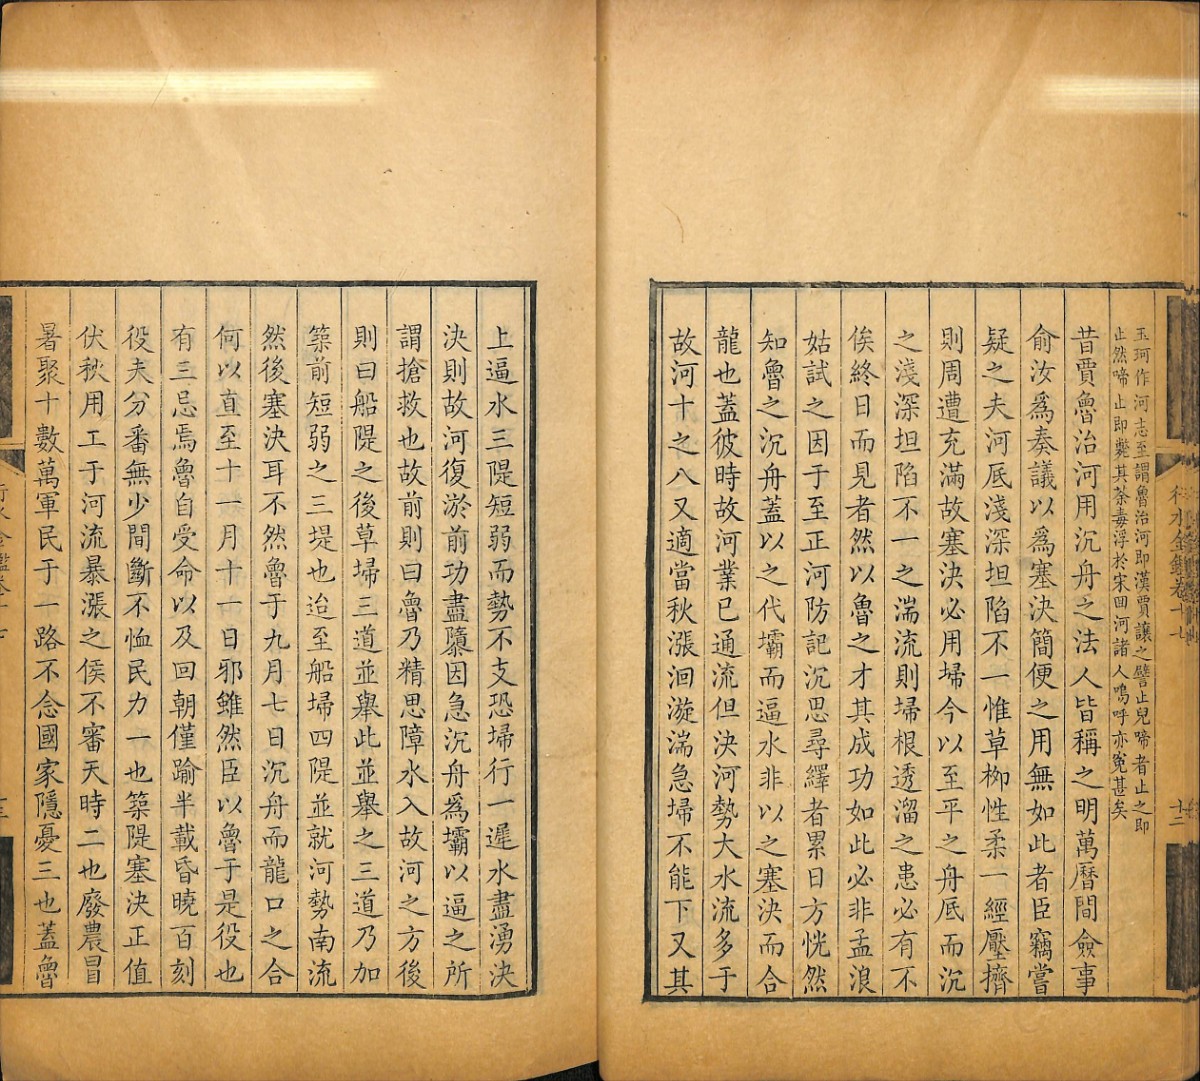 玉珂作河志至謂魯治河即漢賈讓之譬止兒啼者止之即
止然啼止即斃其荼毒浮於宋回河諸人嗚呼亦冤甚矣
昔賈魯治河用沉舟之法人皆稱之明萬曆間僉事
俞汝爲奏議以爲塞決簡便之用無如此者臣竊嘗
疑之夫河底淺深坦陷不一惟草柳性柔一經壓擠
則周遭充滿故塞決必用埽今以至平之舟底而沉
之淺深坦陷不一之湍流則埽根透溜之患必有不
俟終日而見者然以魯之才其成功如此必非孟浪
姑試之因于至正河防記沉思尋繹者累日方恍然
知魯之沉舟蓋以之代壩而逼水非以之塞決而合
龍也蓋彼時故河業已通流但決河勢大水流多于
故河十之八又適當秋漲洄漩湍急埽不能下又其
行水金鑑卷十七
十二
上逼水三隄短弱而勢不支恐埽行一遲水盡湧決
決則故河復淤前功盡隳因急沉舟爲壩以逼之所
謂搶救也故前則曰魯乃精思障水入故河之方後
則曰船隄之後草埽三道並舉此並舉之三道乃加
築前短弱之三堤也迨至船埽四隄並就河勢南流
然後塞決耳不然魯于九月七日沉舟而龍口之合
何以直至十一月十一日邪雖然臣以魯于是役也
有三忌焉魯自受命以及回朝僅踰半載昏曉百刻
役夫分番無少間斷不恤民力一也築隄塞決正值
伏秋用工于河流暴漲之候不審天時二也廢農冒
暑聚十數萬軍民于一路不念國家隱憂三也蓋魯